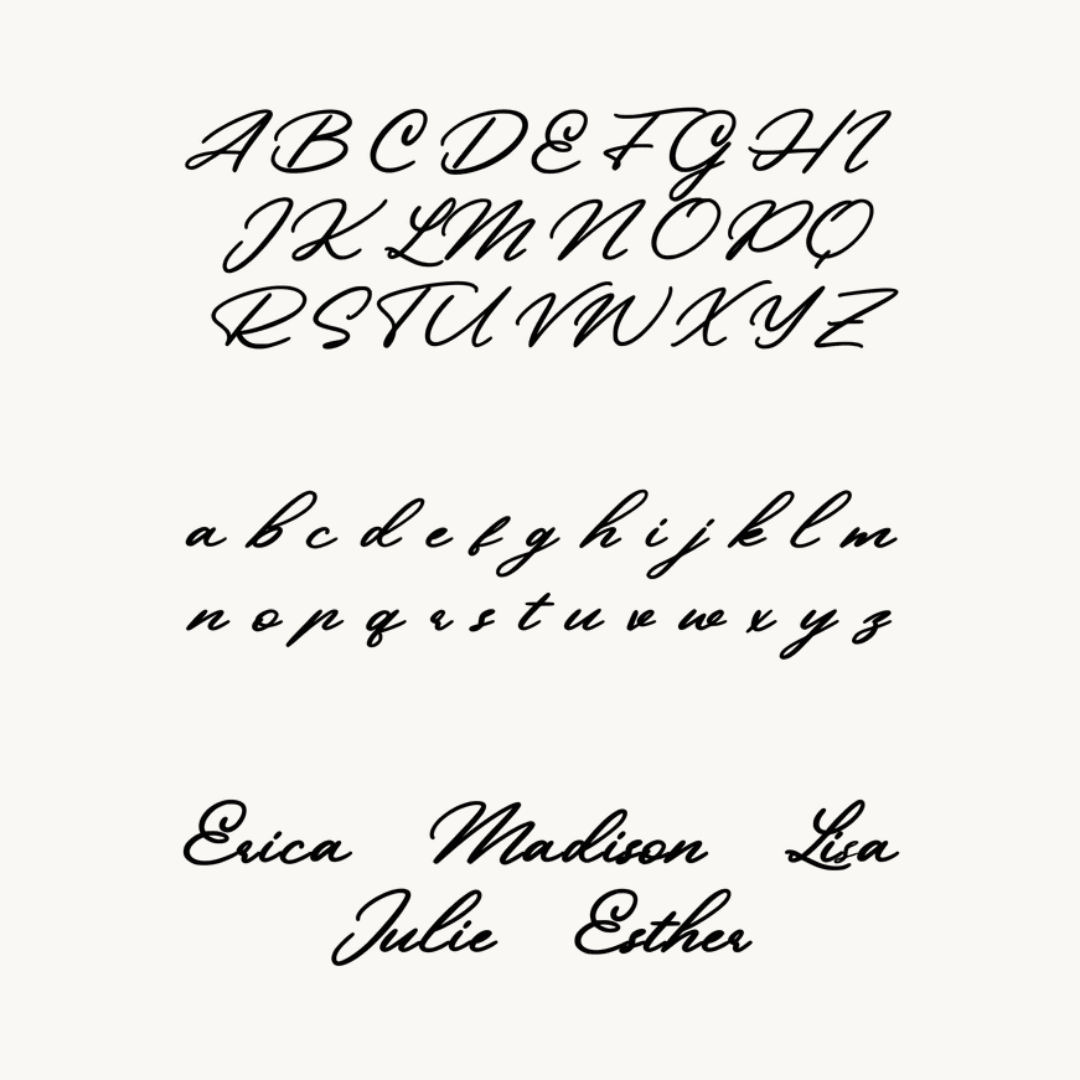 ABCDEFGHI
JKLMNOPQ
RSTUVWXYZ
a b c d e f g h i j k l m
n o p q r s t u v w x y z
Erica Madison Lisa
Julie Esther